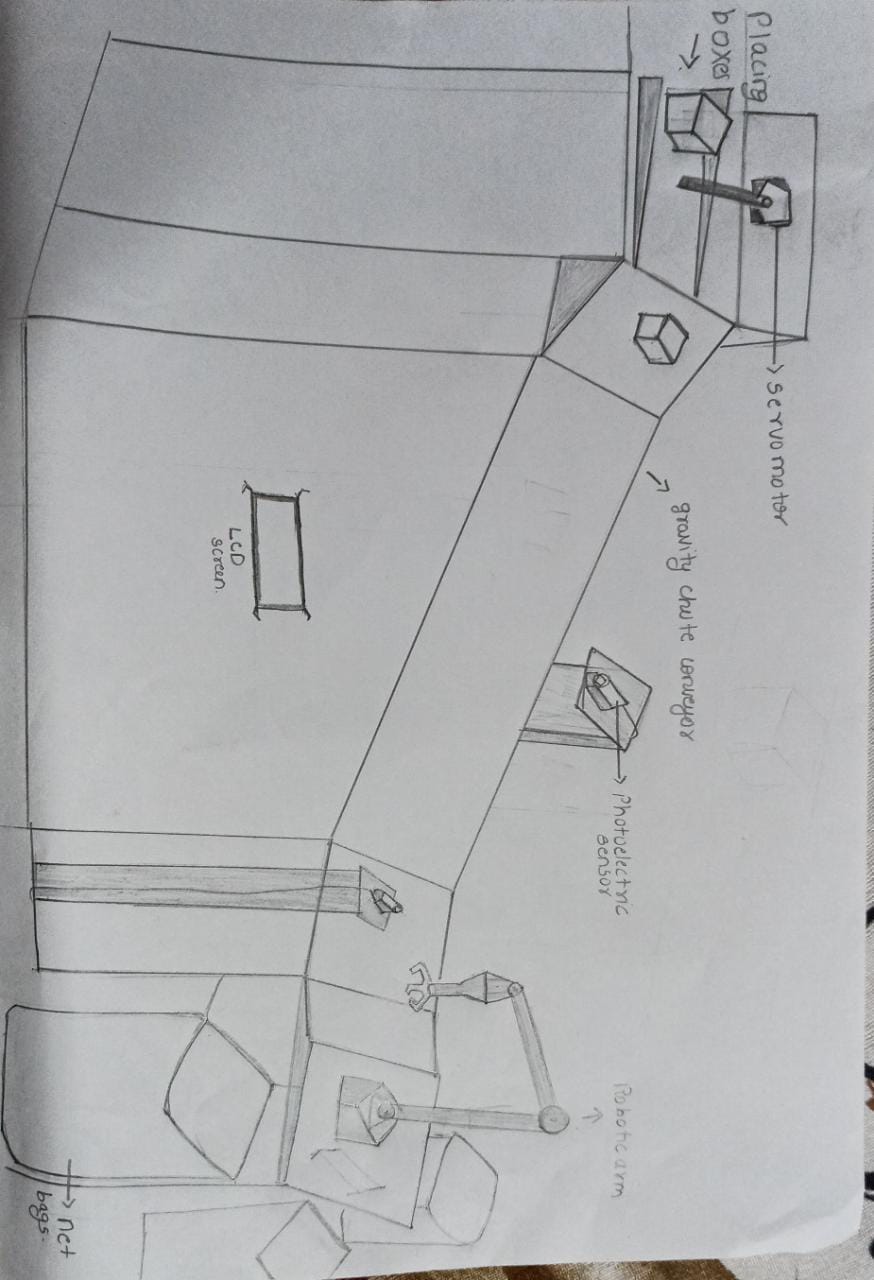 Placing
boxes
servomotor
gravity chute conveyor
Photoelectric
sensor
Robotic arm
LCD
screen.
net
bags.